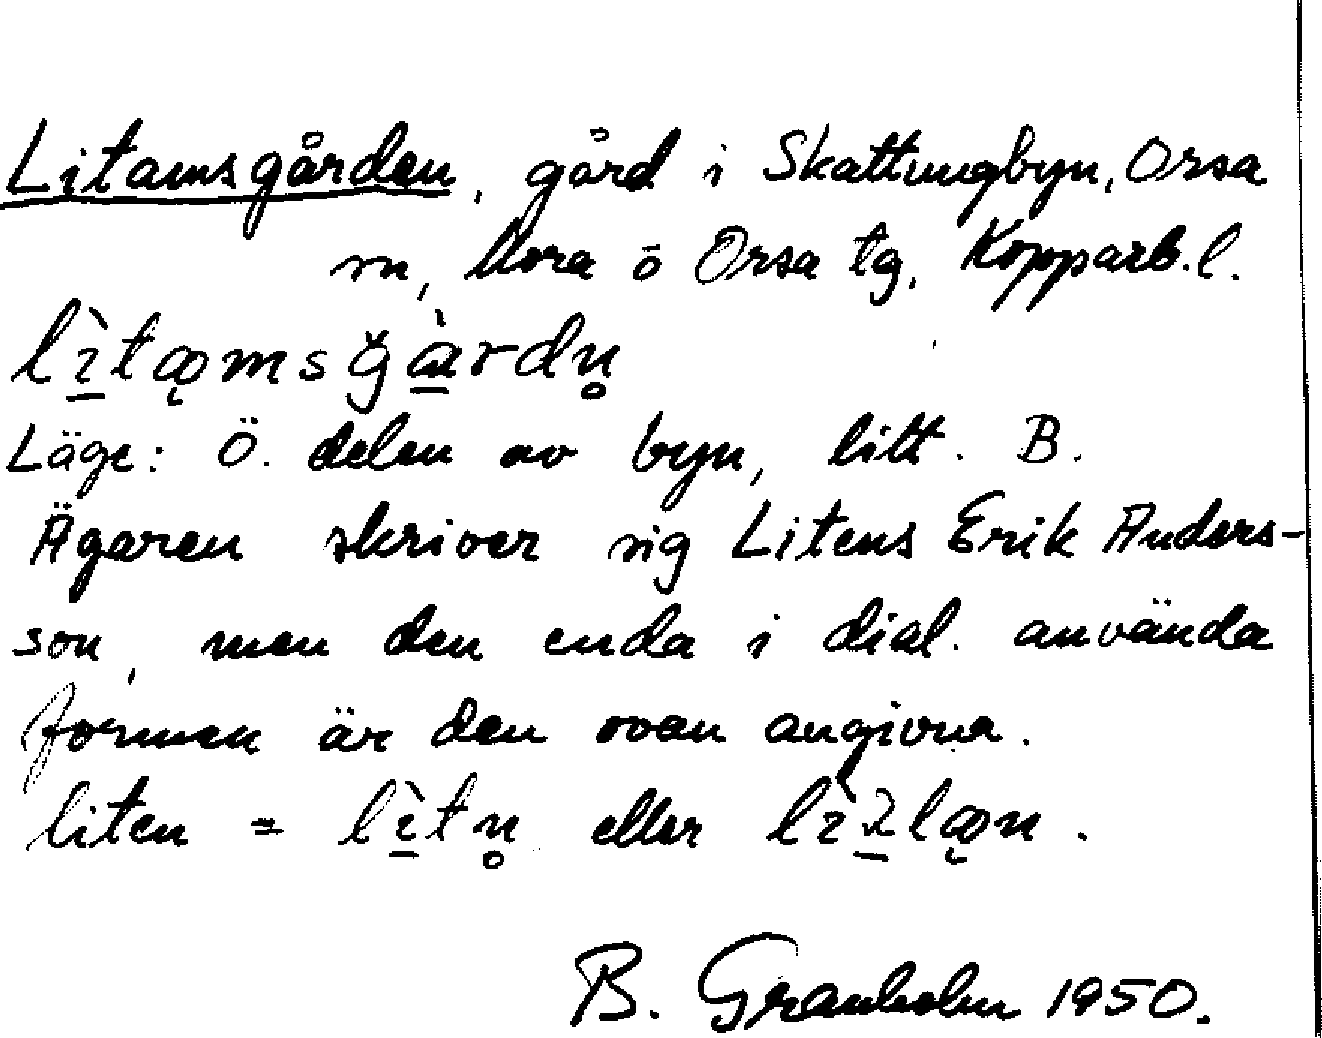 Litamsgården, gård i Skattungbyn, Orsa
sn, Mora o Orsa tg, Kopparb.l.
Läge: Ö. delen av byn, litt. B.
Ägaren skriver sig Litens Erik Anders-
son, men den enda i dial. använda
formen är den ovan angivna.
liten = eller
B. Granholm 1950.